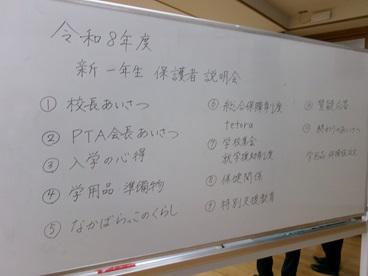 令和8年度
新一年生 保護者 説明会
① 校長あいさつ
② PTA会長あいさつ
③ 入学の心得
④ 学用品 準備物
⑤ なかばらっこのくらし
⑥ 総合保障制度
tetoru
⑦ 学校集金
就学援助制度
⑧ 保健関係
⑨ 特別支援教育
⑩ 質疑応答
⑪ 終わりのあいさつ
学用品